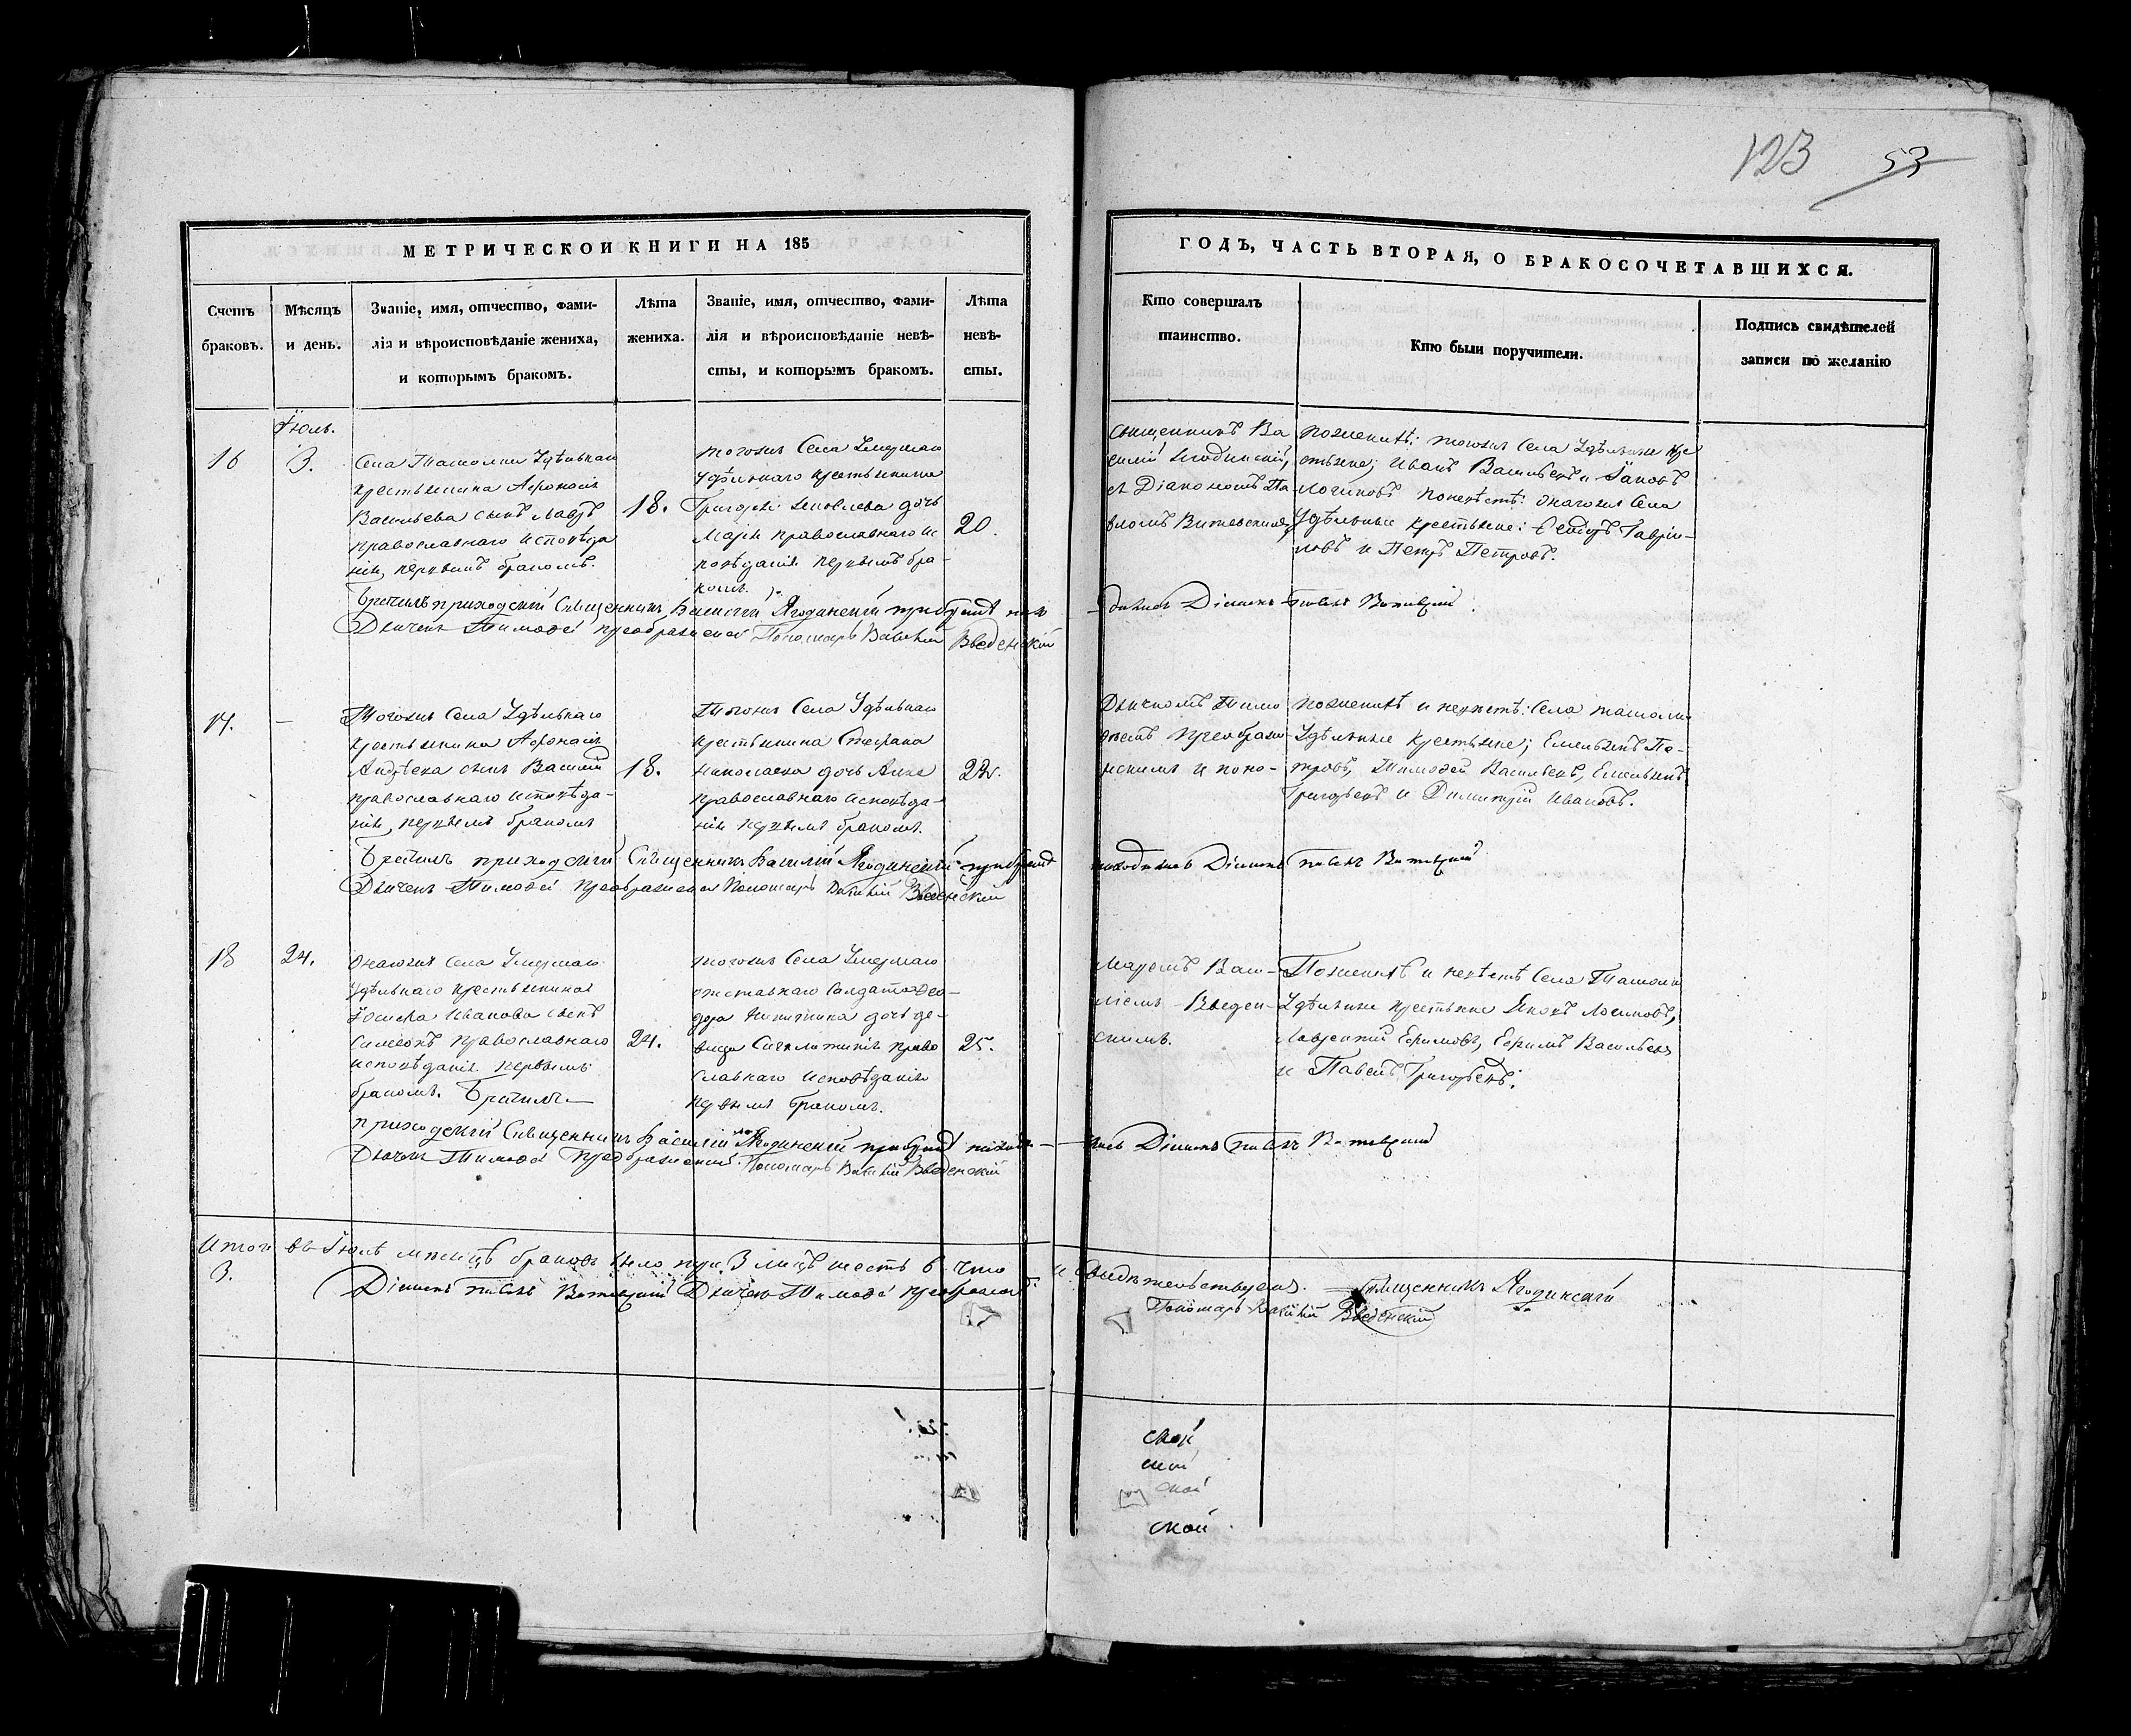 123 53
МЕТРИЧЕСКОЙ КНИГИ НА 185
Счетъ браковъ.
Мѣсяцъ и день.
Званіе, имя, отчество, фами-
лія и вѣроисповѣданіе жениха,
и которымъ бракомъ.
Лѣта жениха.
Званіе, имя, отчество, фами-
лія и вѣроисповѣданіе невѣ-
сты, и которымъ бракомъ.
Лѣта невѣ-
сты.
ГОДЪ, ЧАСТЬ ВТОРАЯ, О БРАКОСОЧЕТАВШИХСЯ.
Кто совершалъ
таинство.
Кто были поручители.
Подпись свидѣтелей
записи по желанію
Іюль.
16
3.
Села Ташолки Удѣльнаго
крестьянина Афонасія
Васильева сынъ Лавръ
православнаго исповѣда
нія, первымъ бракомъ.
18.
тогожъ Села Умершаго
Удѣльнаго крестьянина
Григорія Яковлева дочь
Марія православнаго ис
повѣданія первымъ бра-
комъ.
20.
Священникъ Ва
силій Ягодинскій,
съ Діакономъ Па
вломъ
Поженихѣ: тогожъ Села Удѣльные кре
стьяне; Иванъ Васильевъ и Іаковъ
Логиновъ Поневѣстѣ: онагожъ Села
Удѣльные крестьяне: Гаврии-
ловъ и Петръ Петровъ.
приходскій Священникъ Василій Ягодинскій
Діаконъ Павелъ
Дьячекъ Тимофей Преображенскій Пономарь Василій Введенскій
17.
—
Тогожъ Села Удѣльнаго
крестьянина Афонасія
Андрѣева сынъ Василій
православнаго исповѣда-
нія, первымъ бракомъ
18.
Тогожъ Села Удѣльнаго
крестьянина Стефана
Николаева дочь Анна
православнаго исповѣда-
нія первымъ бракомъ.
Дьячкомъ Тимо
фѣемъ Преображе
нскимъ и поно-
Поженихѣ и невѣстѣ: Села Ташолки
Удѣльные крестьяне; Емельянъ Пе-
тровъ, Тимофей Васильевъ, Емельянъ
Григорьевъ и Димитрій Ивановъ.
приходскій Священникъ Василій Ягодинскій
Діаконъ Павелъ
Дьячекъ Тимофей Преображенскій Пономарь Василій Введенскій
18
24.
Онагожъ Села Умершаго
Удѣльнаго крестьянина
Іосифа Иванова сынъ
Симеонъ православнаго
исповѣданія первымъ
бракомъ.
24.
тогожъ Села Умершаго
отставнаго Солдата Фео-
дора Никитина дочь де-
вица православнаго исповѣданія
первымъ бракомъ.
25.
маремъ Васи-
ліемъ Введен-
скимъ.
Поженихѣ и невѣстѣ Села Ташолки
Удѣльные крестьяне Яковъ Логиновъ,
Лаврентій Ефимовъ, Ефимъ Васильевъ
и Павелъ Григорьевъ.
приходскій Священникъ Василій Ягодинскій
Діаконъ Павелъ
Дьячекъ Тимофей Преображенскій. Пономарь Василій Введенскій
Итого въ Іюлѣ мѣсяцѣ браковъ было три 3 лицъ шесть 6. Что и свидѣтельствуемъ. Священникъ Ягодинскій
3.
Діаконъ Павелъ Дьячекъ Тимофей
Пономарь Василій Введенскій
ской
ской
ской
ской